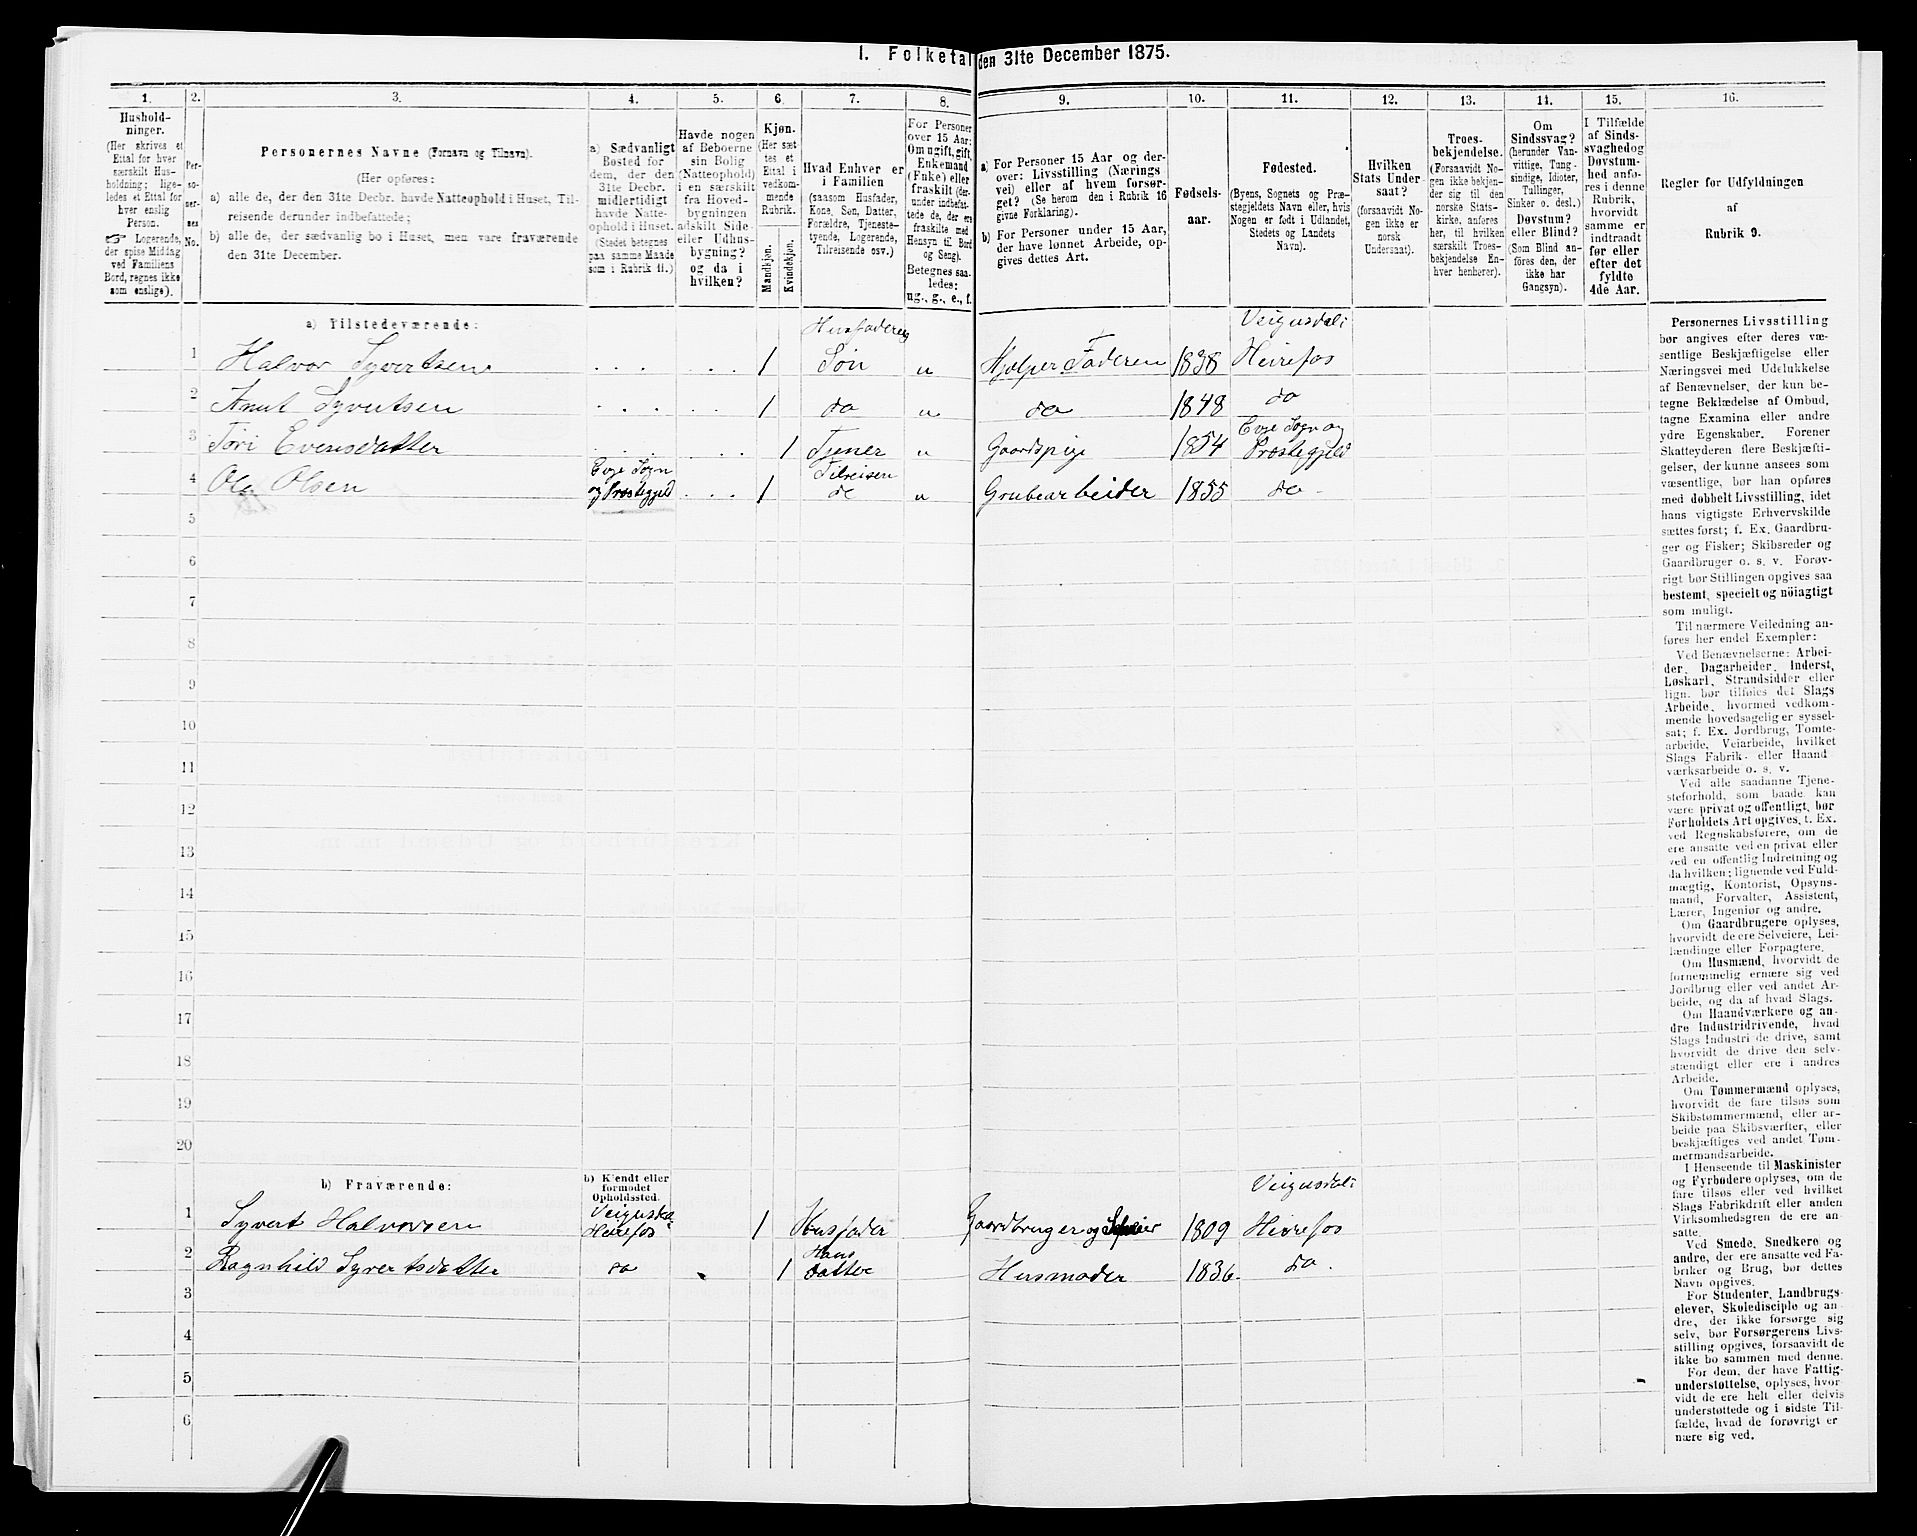 1. Folketal den 31te December 1875.
1. 2. 3. 4. 5. 6. 7. 8. 9. 10. 11. 12. 13. 14. 15. 16.
Hushold-
ninger.
(Her skrives et
Ettal for hver
særskilt Hus-
holdning; lige-
ledes et Ettal for
hver enslig
Person.
☞ Logerende,
der spise Middag
ved Familiens
Bord, regnes ikke
som enslige).
Per-
so-
ner-
nes
No.
Personernes Navne (Fornavn og Tilnavn).
(Her opføres:
a) alle de, der den 31te Decbr. havde Natteophold i Huset, Til-
reisende derunder indbefattede;
b) alle de, der sædvanlig bo i Huset, men vare fraværende
den 31te December.
a) Sædvanligt
Bosted for
dem, der den
31te Decbr.
midlertidigt
havde Natte-
ophold i Huset.
(Stedet betegnes
paa samme Maade
som i Rubrik 11.)
Havde nogen
af Beboerne
sin Bolig
(Natteophold)
i en særskilt
fra Hoved-
bygningen
adskilt Side-
eller Udhus-
bygning?
og da i
hvilken?
Kjøn.
(Her sæt-
tes et
Ettal i
vedkom-
mende
Rubrik.
Mandkjøn.
Kvindekjøn.
Hvad Enhver er
i Familien
(saasom Husfader,
Kone, Søn, Datter,
Forældre, Tjeneste-
tyende, Logerende,
Tilreisende osv.)
For Personer
over 15 Aar:
Om ugift, gift,
Enkemand
(Enke) eller
fraskilt (der-
under indbefat-
tede de, der ere
fraskilte med
Hensyn til Bord
og Seng).
Betegnes saa-
ledes:
ug., g., e., f.
a) For Personer 15 Aar og der-
over: Livsstilling (Nærings
vei) eller af hvem forsør-
get? (Se herom den i Rubrik 16
givne Forklaring).
b) For Personer under 15 Aar,
der have lønnet Arbeide, op-
gives dettes Art.
Fødsels-
aar.
Fødested.
(Byens, Sognets og Præ-
stegjeldets Navn eller, hvis
Nogen er født i Udlandet,
Stedets og Landets
Navn).
Hvilken
Stats Under-
saat?
(forsaavidt No-
gen ikke er
norsk
Undersaat).
Troes-
bekjendelse.
(Forsaavidt No-
gen ikke bekjen-
der sig til den
norske Stats-
kirke, anføres
her, til hvilken
særskilt Troes-
bekjendelse En-
hver henhører).
Om
Sindssvag?
(herunder Van-
vittige, Tung-
sindige, Idioter,
Tullinger,
Sinker o. desl.)
Døvstum?
eller Blind?
(Som Blind an-
føres den, der
ikke har
Gangsyn).
I Tilfælde
af Sinds-
svaghed og
Døvstum-
hed anfø-
res i denne
Rubrik,
hvorvidt
samme er
indtraadt
før eller
efter det
fyldte
4de Aar.
Regler for Udfyldningen
af
Rubrik 9.
a) Tilstedeværende:
Husfaderens Veigusdal i
1 Halvor Syvertsen 1 Søn u Hjelper Faderen 1838 Heirefos
2 Knut Syvertsen 1 do u do 1848 do
Evje Sogn og
3 Tori Evensdatter 1 Tjener u Gaardspige 1854 Præstegjeld
Evje Sogn Tilreisen
4 Ole Olsen og Præstegjeld 1 de u Grubearbeider 1855 do
5
6
7
8
9
10
11
12
13
14
15
16
17
18
19
20
b) Fraværende:
b) Kjendt eller
formodet
Opholdssted.
Veigusdal i
1 Syvert Halvorsen Heirefos 1 Husfader Gaardbruger og 1809 Heirefos
Hans
2 Ragnhild Syvertsdatter do 1 Datter Husmoder 1836 do
3
4
5
6
Personernes Livsstilling
bør angives efter deres væ-
sentlige Beskjæftigelse eller
Næringsvei med Udelukkelse
af Benævnelser, der kun be-
tegne Beklædelse af Ombud,
tagne Examina eller andre
ydre Egenskaber. Forener
Skatteyderen flere Beskjæfti-
gelser, der kunne ansees som
væsentlige, bør han opføres
med dobbelt Livsstilling, idet
hans vigtigste Erhvervskilde
sættes først; f. Ex. Gaardbru-
ger og Fisker; Skibsreder og
Gaardbruger o. s. v. Forøv-
rigt bør Stillingen opgives saa
bestemt, specielt og nöiagtigt
som muligt.
Til nærmere Veiledning an-
føres her endel Exempler:
Ved Benævnelserne: Arbei-
der, Dagarbeider, Inderst,
Løskarl, Strandsidder eller
lign. bør tilføies det Slags
Arbeide, hvormed vedkom-
mende hovedsagelig er syssel-
sat; f. Ex. Jordbrug, Tomte-
arbeide, Veiarbeide, hvilket
Slags Fabrik- eller Haand
værksarbeide o. s. v.
Ved alle saadanne Tjene-
steforhold, som baade kan
være privat og offentligt, bør
Forholdets Art opgives, t. Ex.
ved Regnskabsførere, om de
ere ansatte ved en privat eller
ved en offentlig Indretning og
da hvilken; lignende ved Fuld-
mægtig, Kontorist, Opsyns-
mand, Forvalter, Assistent,
Lærer, Ingeniør og andre.
Om Gaardbrugere oplyses,
hvorvidt de ere Selveiere, Lei-
lændinge eller Forpagtere.
Om Husmænd, hvorvidt de
fornemmelig ernære sig ved
Jordbrug eller ved andet Ar-
beide, og da af hvad Slags.
Om Haandværkere og an-
dre Industridrivende, hvad
Slags Industri de drive, samt
hvorvidt de drive den selv-
stændigt eller ere i andres
Arbeide.
Om Tømmermænd oplyses,
hvorvidt de fare tilsøs som
Skibstømmermænd, eller ar-
beide paa Skibsværfter, eller
beskjæftiges ved andet Tøm-
mermandsarbeide.
I Henseende til Maskinister
og Fyrbødere oplyses, om de
fare tilsøs eller ved hvilket
Slags Fabrikdrift eller anden
Virksomhedsgren de ere an-
satte.
Ved Smede, Snedkere og
andre, der ere ansatte ved Fa-
briker og Brug, bør dettes
Navn opgives.
For Studenter, Landbrugs-
elever, Skoledisciple og an-
dre, der ikke forsørge sig
selv, bør Forsørgerens Livs-
stilling opgives, forsaavidt de
ikke bo sammen med denne.
For dem, der have Fattig-
understøttelse, oplyses, hvor-
vidt de ere helt eller delvis
understøttede og i sidste Til-
fælde, hvad de forøvrigt er
nære sig ved.